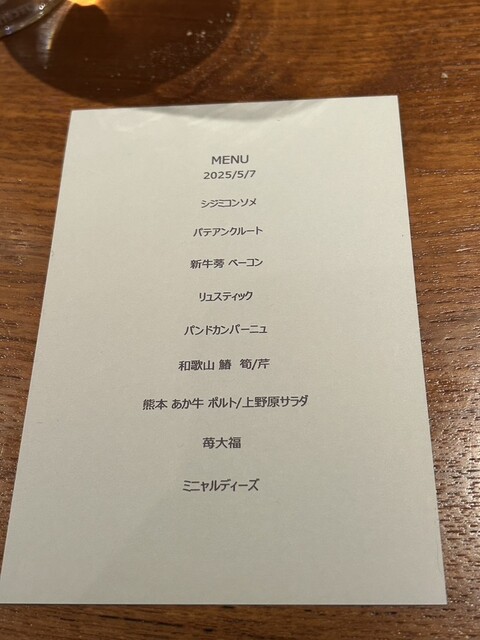 MENU
2025/5/7
シジミコンソメ
パテアンクルート
新牛蒡 ベーコン
リュスティック
パンドカンパーニュ
和歌山 鰆 筍/芹
熊本 あか牛 ポルト/上野原サラダ
苺大福
ミニャルディーズ